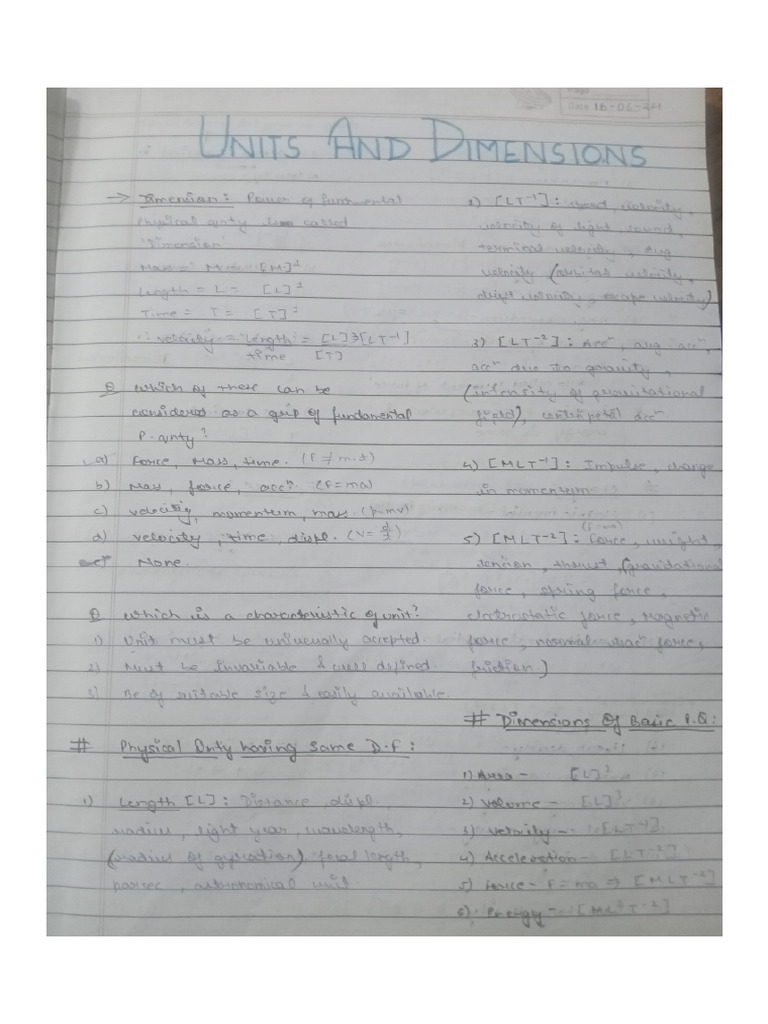 Date 18-06-24
UNITS AND DIMENSIONS
→ Dimension: Power of fundamental
Physical qnty is called
"Dimension"
Mass = M = [M]¹
Length = L = [L]¹
Time = T = [T]¹
∴ velocity = Length = [L] ⇒ [LT⁻¹]
time [T]
Q which of these can be
considered as a grp of fundamental
P. qnty?
a) Force, Mass, time. (F ≠ m.t)
b) Mass, force, accⁿ. (F=ma)
c) velocity, momentum, mass. (p=mv)
d) velocity, time, displ. (V= d/t)
None.
Q which is a characteristic of unit?
1) Unit must be accepted.
2) Must be Invariable & well defined.
3) Be of suitable size & easily available.
# Physical Qnty having same D.F:
1) Length [L]: Distance, displ.,
radius, light year, wavelength,
(radius of gyration) focal length,
parsec, astronomical unit.
2) [LT⁻¹]: speed, velocity,
velocity of light, sound,
terminal velocity, avg.
velocity (orbital velocity,
drift velocity, escape velocity)
3) [LT⁻²]: Accⁿ, avg accⁿ,
accⁿ due to gravity,
(intensity of gravitational
field), centripetal accⁿ
4) [MLT⁻¹]: Impulse, change
in momentum
(F=ma)
5) [MLT⁻²]: Force, weight,
tension, thrust, (gravitational
force, spring force,
electrostatic force, magnetic
force, normal reacⁿ force,
friction)
# Dimensions Of Basic P.Q:
1) Area - [L]²
2) Volume - [L]³
3) Velocity - [LT⁻¹]
4) Acceleration - [LT⁻²]
5) Force - F = ma ⇒ [MLT⁻²]
6) [ML²T⁻²]